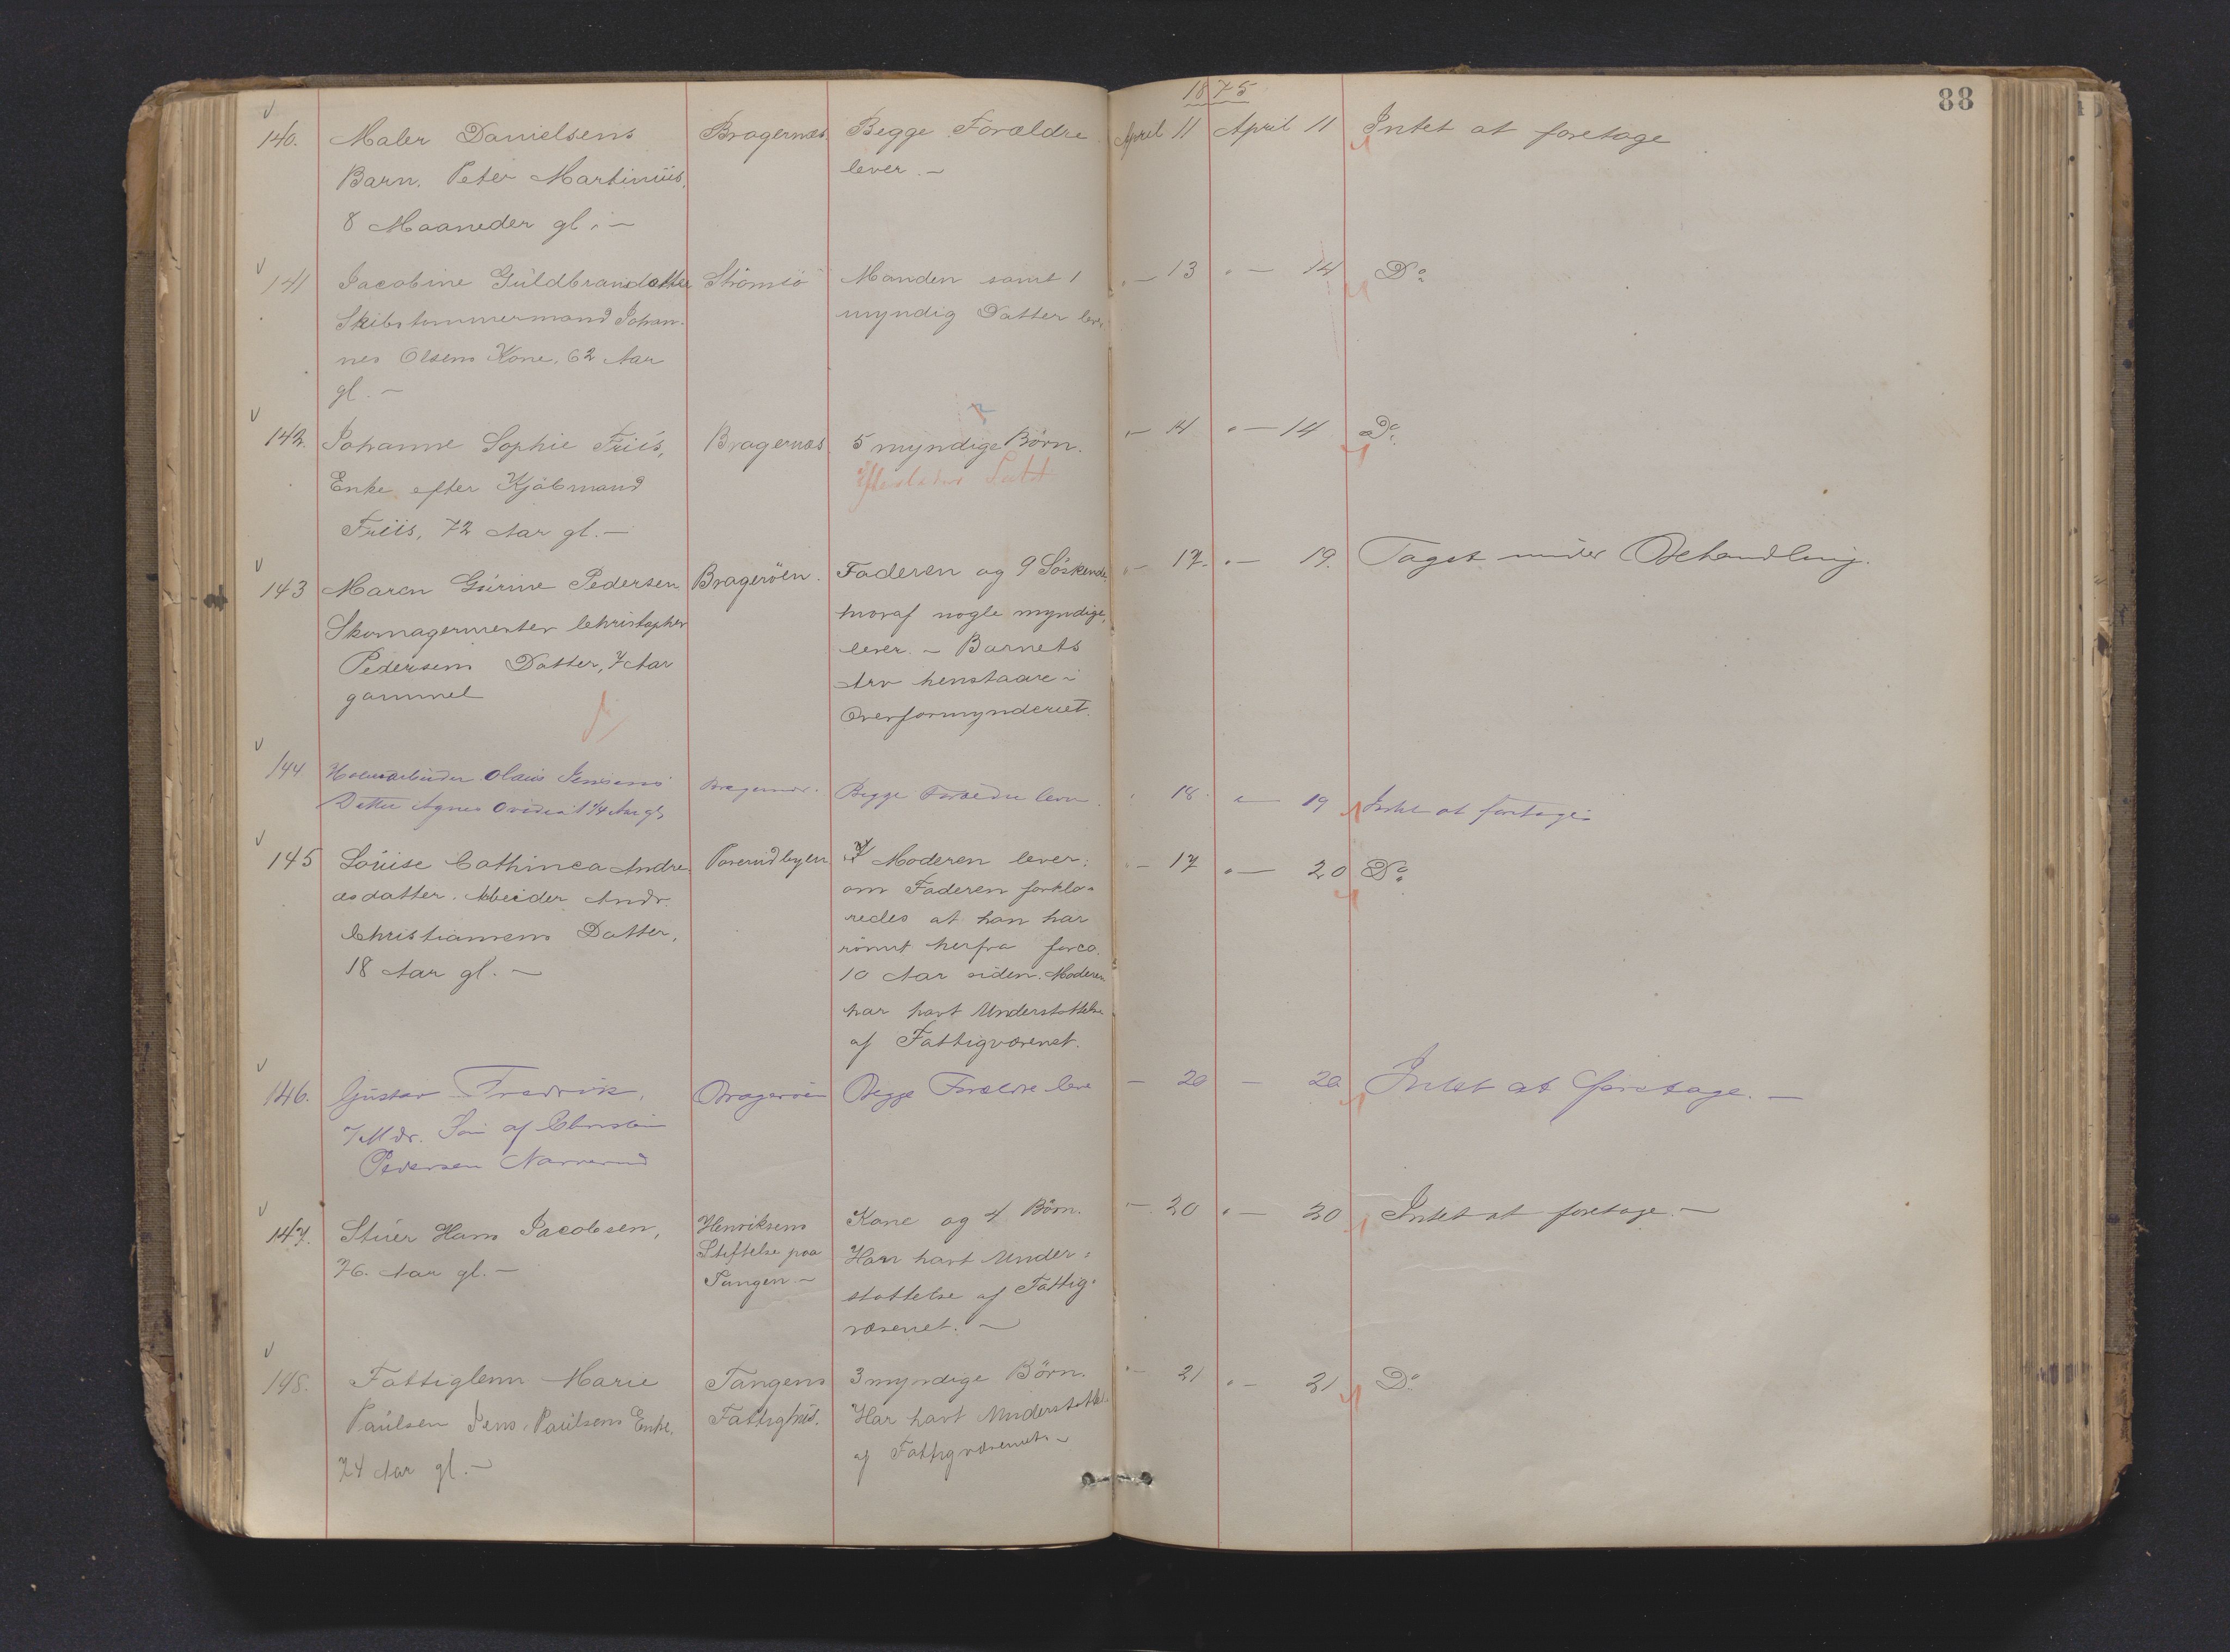 1875
88
140.
Maler Danielsens
Barn. Peter Martinius,
8 Maaneder gl. –
Bragernæs
Begge Forældre
lever. –
April 11
April 11
Intet at foretage
141
Jacobine Guldbrandsdatter
Skibstømmermand Johan-
nes Olsens Kone, 62 Aar
gl. –
Strømsö
Manden samt 1
myndig Datter lever
" – 13
" – 14
Do
142.
Johanne Sophie Friis,
Enke efter Kjøbmand
Friis, 72 Aar gl. –
Bragernæs
5 myndige Börn.
" – 14
" – 14
Do
143
Maren Gurine Pedersen
Skomagermester Christopher
Pedersens Datter, 7 Aar
gammel
Bragerøen.
Faderen og 9 Söskende
hvoraf nogle myndige,
lever. – Barnets
Arv henstaare i
Overformynderiet.
" – 17.
" – 19.
Taget under Behandling.
144
Olaus Jensens
Datter Agnes Ovidia 1 1/4 Aar gl.
Bragernæs.
Begge Forældre lever.
" 18.
" – 19
Intet at foretage
145
Louise Cathinca Andre
asdatter. Arbeider Andr.
Christiansens Datter,
18 Aar gl. –
Moderen lever;
om Faderen forkla-
redes at han har
römt herfra for ca.
10 Aar siden. Moderen
har havt Understøttelse
af Fattigvæsenet.
" – 17
" – 20
Do
146.
Gustav Fredrik,
7 Mdr. Søn af Christian
Pedersen Narverud
Bragerøen
Begge Forældre leve
– 20
– 20
Intet at foretage. –
147.
Stuer Hans Jacobsen,
76. Aar gl. –
Henriksens
Stiftelse paa
Tangen –
Kone og 4 Börn.
Har havt Under-
støttelse af Fattig-
væsenet. –
" – 20
" – 20
Intet at foretage. –
148.
Fattiglem Marie
Paulsen Jens Paulsens Enke,
74 Aar gl. –
Tangens
Fattighus.
3 myndige Börn.
Har havt Understøttelse
af Fattigvæsenet. –
" – 21
" – 21
Do